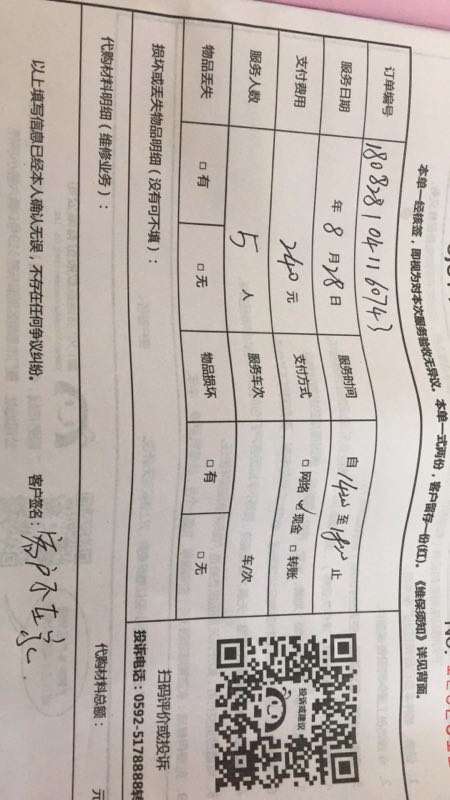 本单一经核签，即视为对本次服务验收无异议。本单一式两份，客户留存一份(红)。《维保须知》详见背面。
订单编号 1808281041160743
服务日期 年 8 月 28 日 服务时间 自 1400 至 1800 止
支付费用 240 元 支付方式 □ 网络 ☑ 现金 □ 转账
服务人数 5 人 服务车次 车/次
物品丢失 □ 有 □ 无 物品损坏 □ 有 □ 无
损坏或丢失物品明细（没有可不填）：
代购材料明细（维修业务）：
代购材料总额： 元
投诉或建议
扫码评价或投诉
投诉电话：0592-5178888转
以上填写信息已经本人确认无误，不存在任何争议纠纷。 客户签名：客户不在家